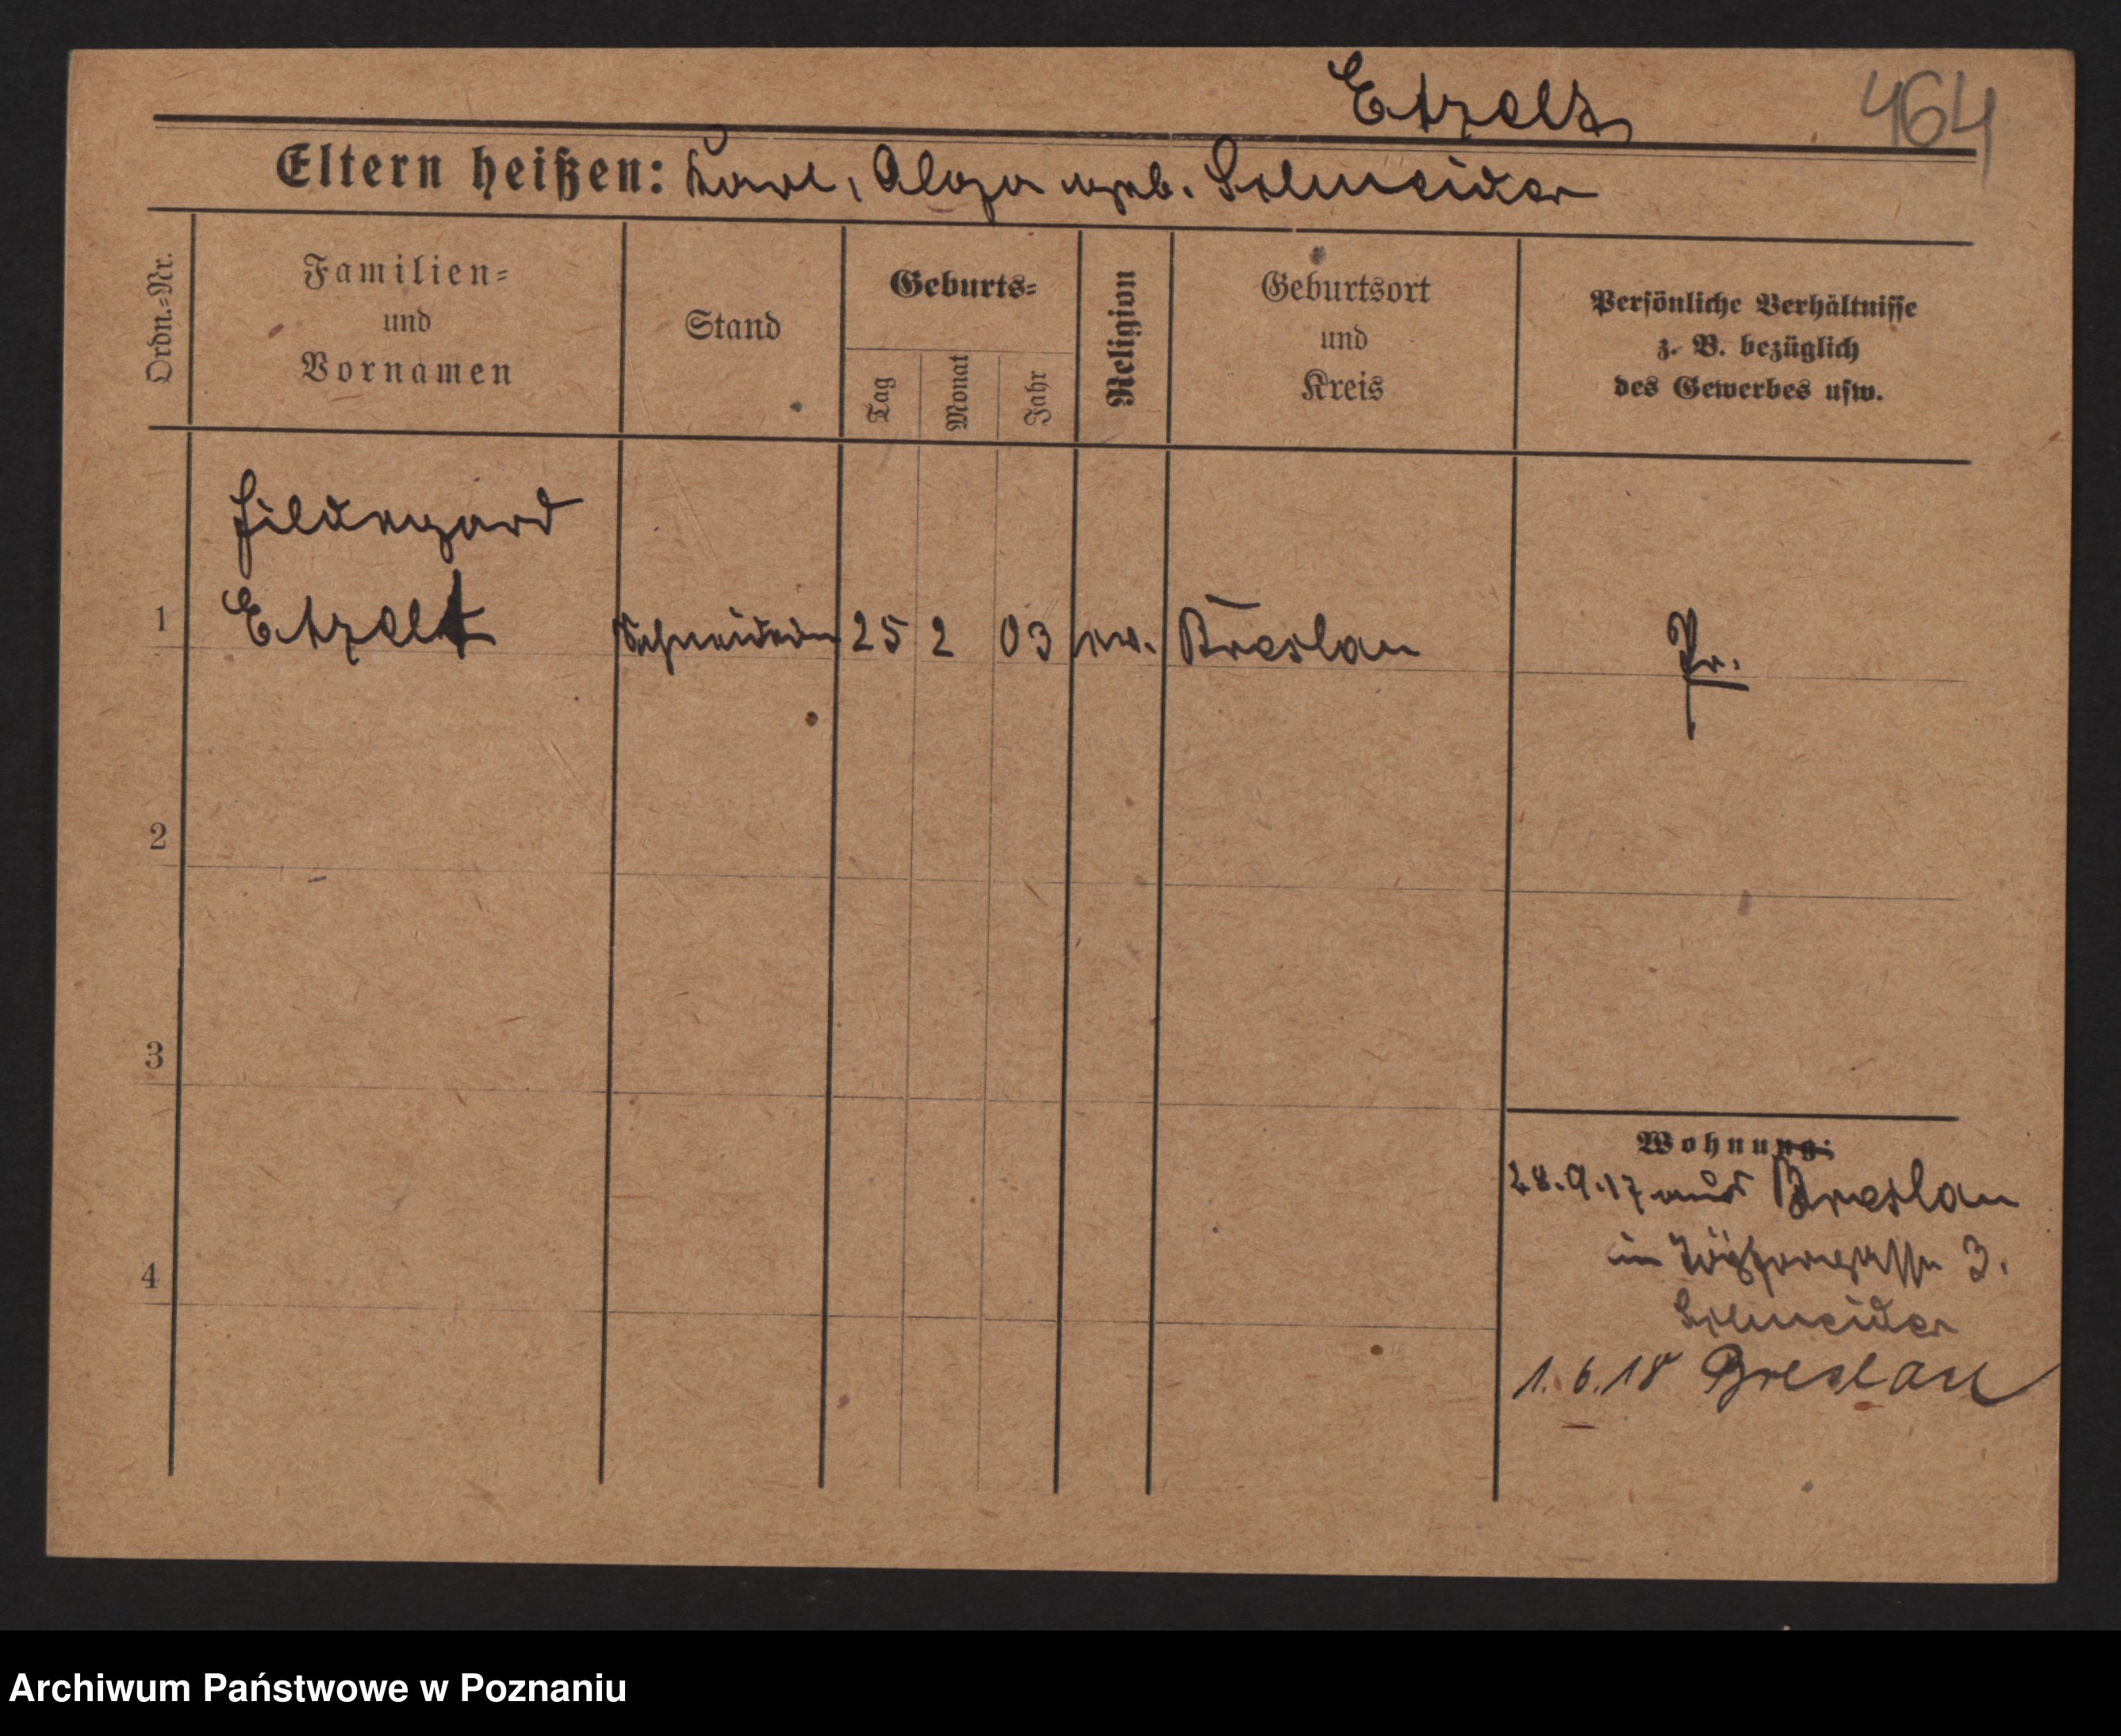 Etzelt 464
Eltern heißen: Karl, Olga geb. Schneider
Ordn.=Nr.
Familien=
und
Vornamen
Stand
Geburts=
Tag
Monat
Jahr
Religion
Geburtsort
und
Kreis
Persönliche Verhältnisse
z. B. bezüglich
des Gewerbes usw.
Hildegard
1 Etzelt Schneiderin 25 2 03 ev. Breslau Pr.
2
3
Wohnung:
28.9.17 aus Breslau
in 3.
4
Schneider
1.6.18 Breslau
Archiwum Państwowe w Poznaniu